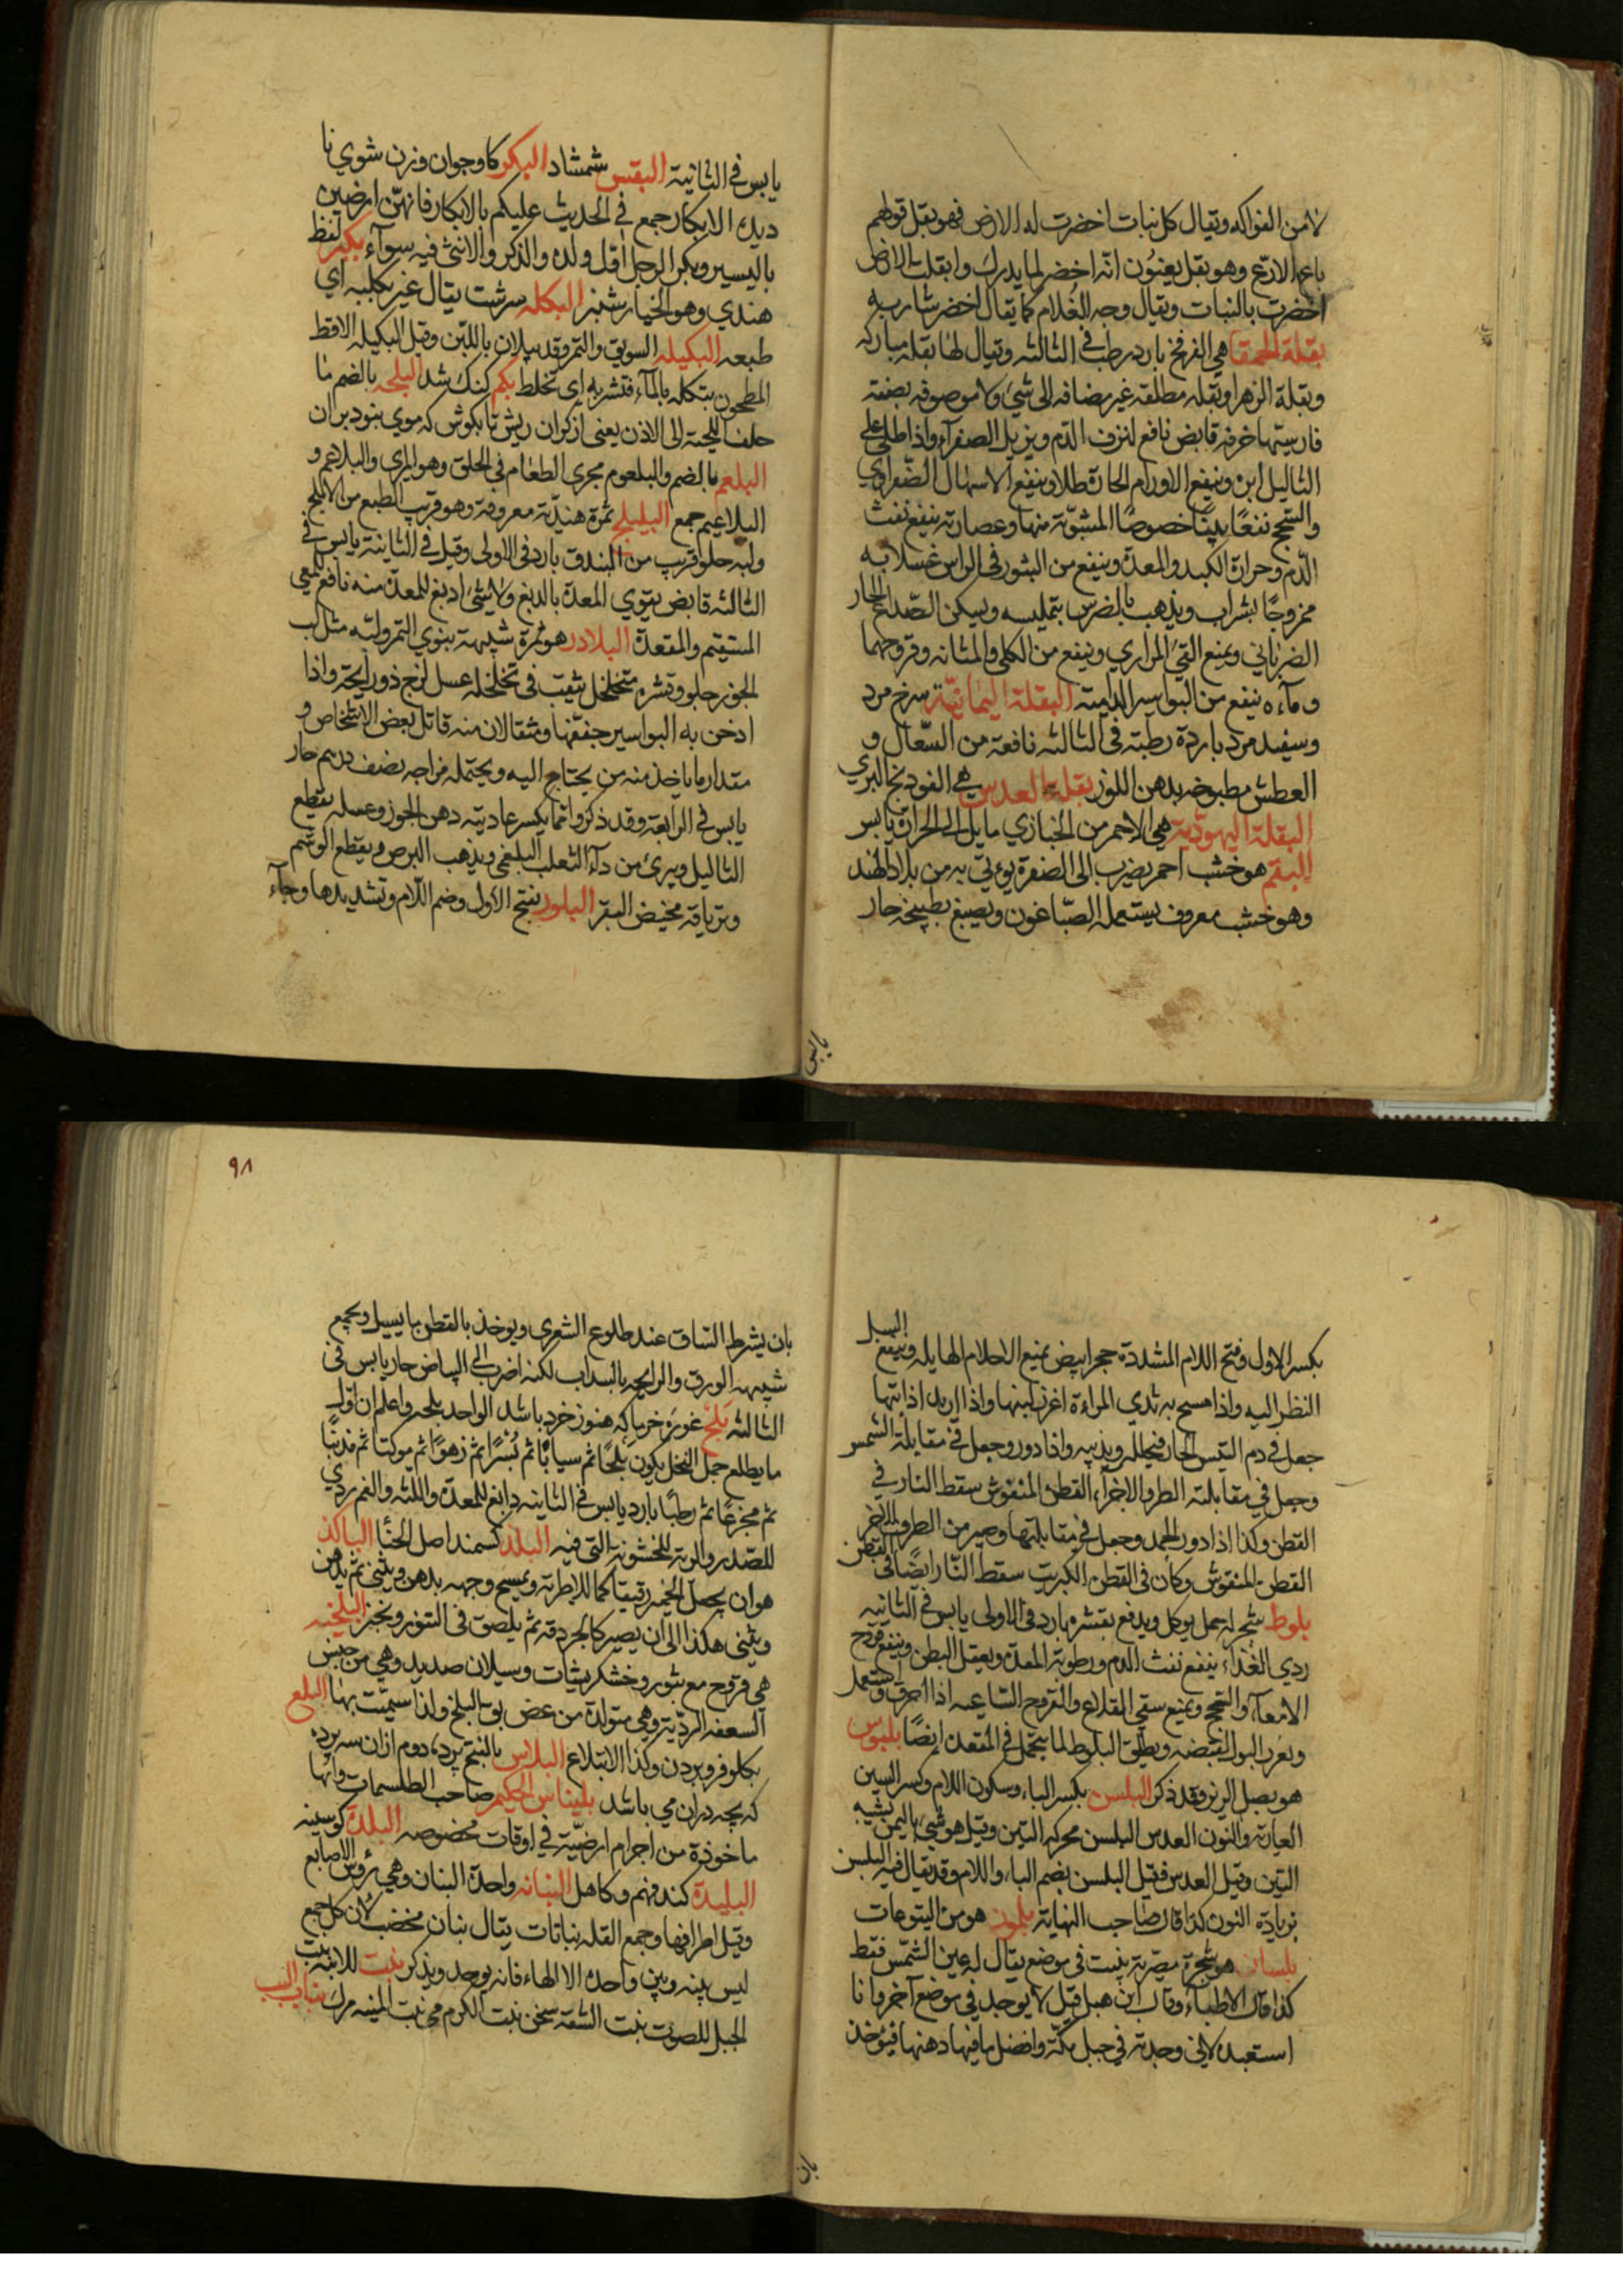 لا من الفواكه ويقال كل نبات اخضرت له الارض فهو بقل قولهم
باعها الازرع وهو بقل يعنون انه اخضر لما يدرك وابقلت الارض
اخضرت بالنبات ويقال وجه الغلام كما يقال اخضر شاربه
بقلة الحمقا هي الفرفخ بارد رطب في الثالثه ويقال لها بقله مباركه
وبقلة الزهرا وبقله مطلقه غير مضافه الى شيء ولا موصوفه بصفته
فارسيتها خرفه قابض نافع لنزف الدم ويزيل الصفرآء واذا طلى على
الثاليل ابرن وينفع الاورام الحارة طلا وينفع الاسهال الصفراوي
والسحج نفعًا بينًا خصوصًا المشوّية منها وعصارته ينفع نفث
الدم وحرارة الكبد والمعدة وينفع من البثور في الراس غسلا به
ممزوجًا بشراب ويذهب بالضرس بتمليسه ويسكن الصداع الحار
الضرباني ويمنع القئ المراري وينفع من الكلى والمثانه وقروحهما
وماءه ينفع من البواسير الداميه البقلة اليمانية سرخ مرد
وسفيد مرد باردة رطبته في الثالثه نافعة من السعال و
العطش مطبوخه بدهن اللوز بقلة العدس هي الفودنج البري
البقلة اليهودية هي الاحمر من الخبازي مايل الى الحرارة يابس
البقم هو خشب احمر يضرب الى الصفرة يوتى به من بلاد الهند
وهو خشب معروف يستعمله الصباغون ويصبغ بطبيخه حار
يابس في الثانية البقس شمشاد البكر كاو جوان وزن شوي نا
ديده الابكار جمع في الحديث عليكم بالابكار فانهن ارضين
باليسير وبكر الرجل اول ولده والذكر والانثى فيه سوآء بكبر لفظ
هندي وهو الخيارشنبر البكله سرشت يقال غير بكلبه اي
طبعه البكيله السويق والتمر وقد يبلان باللبن وقيل البكيله الاقط
المطحون يبتكله بالمآء فتشربه اى تخلط بكم كنك شد البلجه بالضم ما
خلف اللحية الى الاذن يعنى از كران ريش تا بكوش كه موي بنود بران
البلعم بالضم والبلعوم مجرى الطعام في الحلق وهو المري والبلاعم و
البلاعيم جمع البليلج ثمرة هندية معروفة وهو قريب الطبع من الاملج
ولبه حلو قريب من البندق بارد في الاولى وقيل في الثانية يابس في
الثالثه قابض يقوي المعدة بالدبغ ولا شئ ادبغ للمعدة منه نافع للمعى
المستقيم والمقعدة البلادر هو ثمرة شبيهة بنوي التمر ولبه مثل لب
الجوز حلو وقشره متخلخل يثقب في تخلخله عسل لزج ذو رايحة واذا
ادخن به البواسير جففها ومثقالان منه قاتل بعض الاشخاص و
مقدار ما ياخذ منه من يحتاج اليه ويحتمله مزاجه نصف درهم حار
يابس في الرابعة وقد ذكروا انما يكسر عاديته دهن الجوز وعسله يقطع
الثاليل ويبرئ من دآء الثعلب البلغمى ويذهب البرص ويقطع الوشم
وترياقه مخيض البقر البلور بفتح الاول وضم اللام وتشديدها وجآء
يابس
٩٨
بكسر الاول وفتح اللام المشددة حجر ابيض يمنع الاحلام الهايله وينفع السبل
النظر اليه واذا مسح به ثدي المراءة اغزر لبنها واذا اريد اذابتها
جعل في دم التيس الحار فيحلله ويذيبه واذا دور وجعل في مقابلة الشمس
وجعل في مقابلته الطرف الاخر القطن المنفوش سقط النار في
القطن وكذا اذا دور الجمد وجعل في مقابلتها وصير من الطرف الاخر
القطن المنفوش وكان في القطن الكبريت سقط النار ايضًا في القطن
بلوط شجر له حمل يوكل ويدفع بقشره بارد في الاولى يابس في الثانيه
ردي الغذاء ينفع نفث الدم ورطوبة المعدة ويعقل البطن وينفع قروح
الامعاء والسحج ويمنع سقى القلاع والقروح الساعيه اذا احرق واستعمل
ويغزر البول لقبضه ويطلق البلوط لما يتحمل في المقعدة ايضًا بلبوس
هو بصل الزيز وقد ذكر البلسن بكسر الباء وسكون اللام وكسر السين
العيارة والنون العدس البلس محركه التين وقيل هو شيء باليمن يشبه
التين وقيل العدس فقيل البلسن بضم الباء واللام وقد يقال فيه البلسن
بزيادة النون كذا قال صاحب النهاية بلمون هو من اليتوعات
بلسان هو شجرة مصرية ينبت في موضع يقال له عين الشمس فقط
كذا قال الاطباء وقال ابن هبل قيل لا يوجد في موضع آخر وانا
استبعده لاني وجدته في جبل مكة وافضل ما فيها دهنها فيؤخذ
بان يشرط الساق عند طلوع الشعرى ويوخذ بالقطن ما يسيل ويجمع
شبيهه الورق والرايحه بالسداب لكنه اضرب الى البياض حار يابس في
الثالثه بلح غوره خرما كه هنوز خرد باشد الواحد بلحه واعلم ان اول
ما يطلع حمل النخل يكون بلحًا ثم سيابًا ثم بُسرًا ثم زهوًا ثم موكتا ثم مذنبًا
ثم مجزعًا ثم رطبًا بارد يابس في الثانيه دابغ للمعدة واللثه والفم ردي
للصدر والرية للخشونة التى فيه البلذ كسمند اصل الحنأ البالذ
هو ان يجعل الخمير رقيقا كما للاطرية ويمسح وجهه بدهن ويثنى ثم يدهن
ويثنى هكذا الى ان يصير كالجردقة ثم يلصق فى التنور ويخبز البلخيه
هي قروح مع بثور وخشكريشات وسيلان صديد وهي من جنس
السعفه الرديه وهى متولدة من عض بق البلخ ولذا سميت بها البلع
بكلو فرو بردن وكذا الابتلاع البلاس بالفتح پرده دوم ازان سه پرده
كه بچه دران مي باشد بليناس الحكيم صاحب الطلسمات وانها
ماخوذة من اجرام ارضية في اوقات مخصوصه البلدة كوسينه
البليدة كند فهم وكاهل البنانه واحدة البنان وهي رؤس الاصابع
وقيل اطرافها وجمع القله بنانات يقال بنان مخضب لان كل جمع
ليس بينه وبين واحده الا الهاء فانه يوحد ويذكر بنت للابنه بنت
الجبل للصوت بنت الشفة سخن بنت الكرم مي بنت المنيه مرك
بان